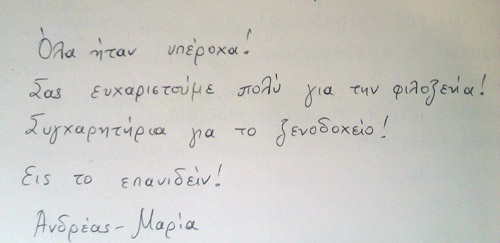 Όλα ήταν υπέροχα!
Σας ευχαριστούμε πολύ για την φιλοξενία!
Συγχαρητήρια για το ξενοδοχείο!
Εις το επανιδείν!
Ανδρέας - Μαρία